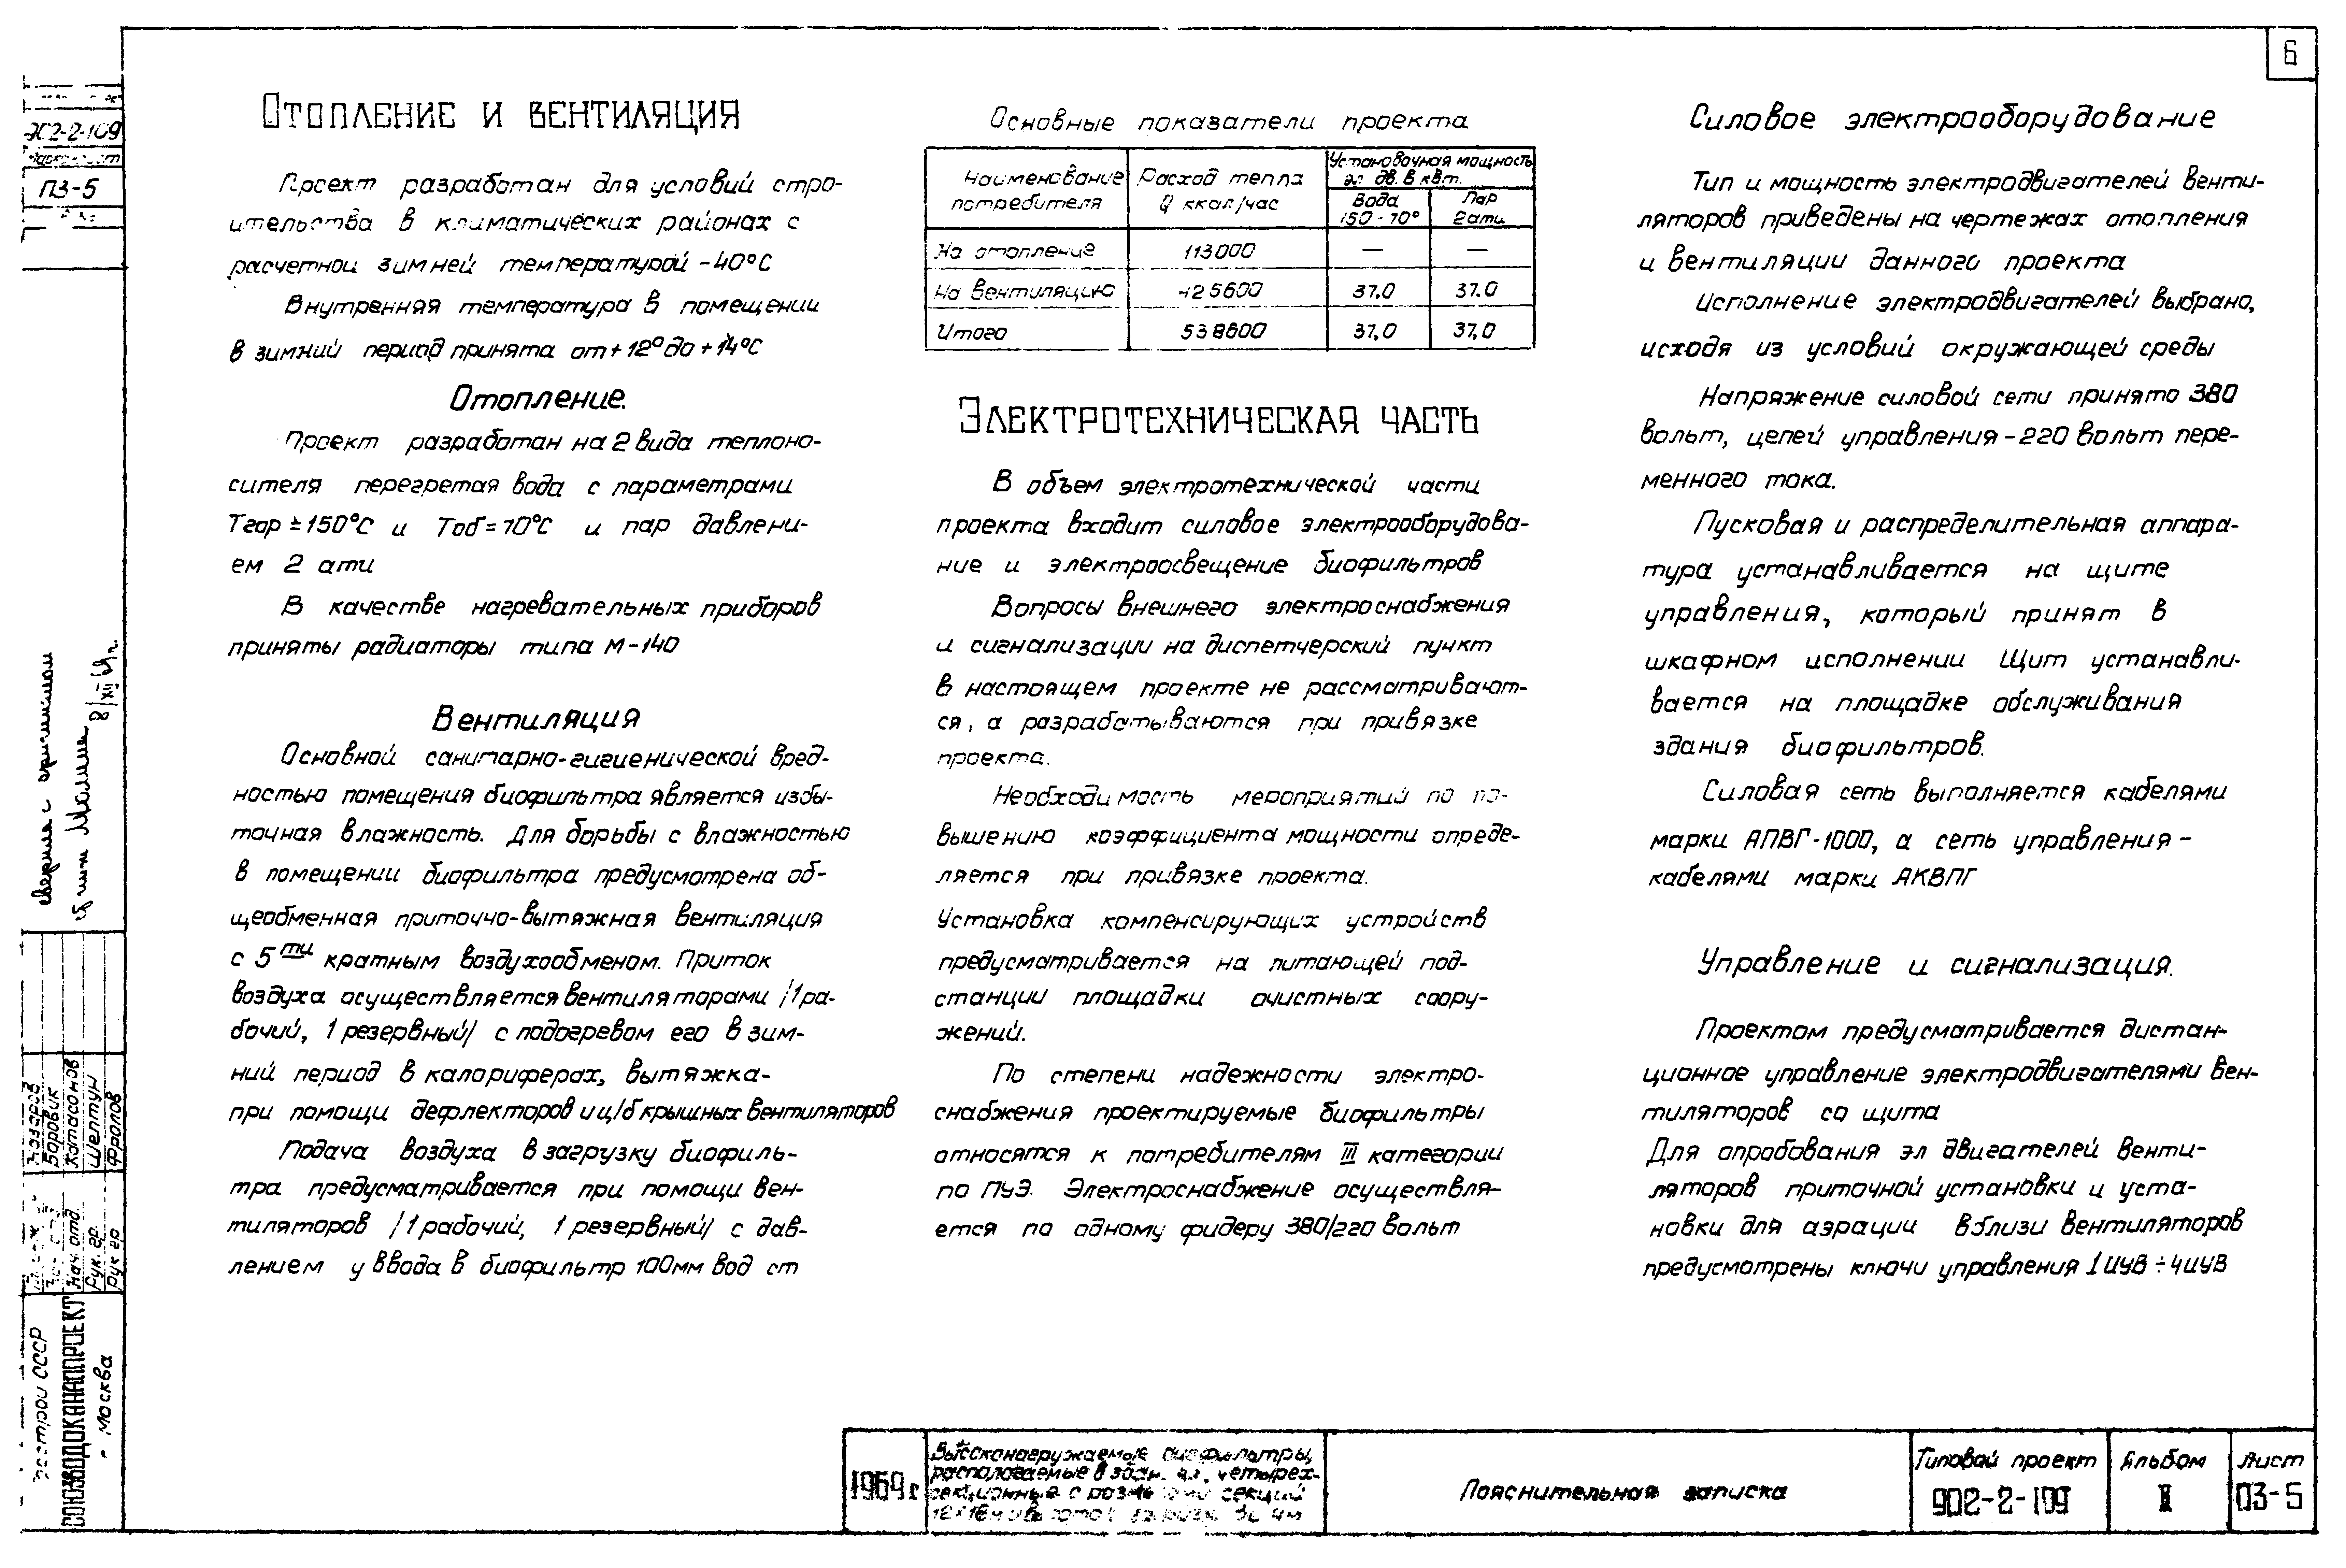 6
Отопление и вентиляция
Проект разработан для условий стро-
ительства в климатических районах с
расчетной зимней температурой -40°С
Внутренняя температура в помещении
в зимний период принята от +12° до +14°С
Отопление.
Проект разработан на 2 вида теплоно-
сителя перегретая вода с параметрами
Тгор = 150°С и Тоб = 70°С и пар давлени-
ем 2 ати
В качестве нагревательных приборов
приняты радиаторы типа М-140
Вентиляция
Основной санитарно-гигиенической вред-
ностью помещения биофильтра является избы-
точная влажность. Для борьбы с влажностью
в помещении биофильтра предусмотрена об-
щеобменная приточно-вытяжная вентиляция
с 5ти кратным воздухообменом. Приток
воздуха осуществляется вентиляторами /1 ра-
бочий, 1 резервный/ с подогревом его в зим-
ний период в калориферах, вытяжка-
при помощи дефлекторов и ц/б крышных вентиляторов
Подача воздуха в загрузку биофиль-
тра предусматривается при помощи вен-
тиляторов /1 рабочий, 1 резервный/ с дав-
лением у ввода в биофильтр 100мм вод ст
Основные показатели проекта
Наименование потребителя
Расход тепла Q ккал/час
Установочная мощность эл дв. в квт.
Вода 150-70°
Пар 2ати
На отопление 113000 — —
На вентиляцию 425600 37.0 37.0
Итого 538600 37,0 37,0
Электротехническая часть
В объем электротехнической части
проекта входит силовое электрооборудова-
ние и электроосвещение биофильтров
Вопросы внешнего электроснабжения
и сигнализации на диспетчерский пункт
в настоящем проекте не рассматривают-
ся, а разрабатываются при привязке
проекта.
Необходимость мероприятий по по-
вышению коэффициента мощности опреде-
ляется при привязке проекта.
Установка компенсирующих устройств
предусматривается на питающей под-
станции площадки очистных соору-
жений.
По степени надежности электро-
снабжения проектируемые биофильтры
относятся к потребителям III категории
по ПУЭ. Электроснабжение осуществля-
ется по одному фидеру 380/220 вольт
Силовое электрооборудование
Тип и мощность электродвигателей венти-
ляторов приведены на чертежах отопления
и вентиляции данного проекта
Исполнение электродвигателей выбрано,
исходя из условий окружающей среды
Напряжение силовой сети принято 380
вольт, цепей управления - 220 вольт пере-
менного тока.
Пусковая и распределительная аппара-
тура устанавливается на щите
управления, который принят в
шкафном исполнении Щит устанавли-
вается на площадке обслуживания
здания биофильтров.
Силовая сеть выполняется кабелями
марки АПВГ-1000, а сеть управления -
кабелями марки АКВПГ
Управление и сигнализация.
Проектом предусматривается дистан-
ционное управление электродвигателями вен-
тиляторов со щита
Для опробования эл двигателей венти-
ляторов приточной установки и уста-
новки для аэрации вблизи вентиляторов
предусмотрены ключи управления 1ИУВ ÷ 4ИУВ
902-2-109
ПЗ-5
8/XII 69г.
Назаров
Боровик
Катасонов
Шелтун
Фролов
Нач. отд.
Рук. гр.
Рук гр
Госстрой СССР
СОЮЗВОДОКАНАЛПРОЕКТ
г Москва
1969 г
Высоконагружаемые биофильтры,
располагаемые в здании, четырех-
секционные с размерами секций
Пояснительная записка
Типовой проект 902-2-109
Альбом II
Лист ПЗ-5